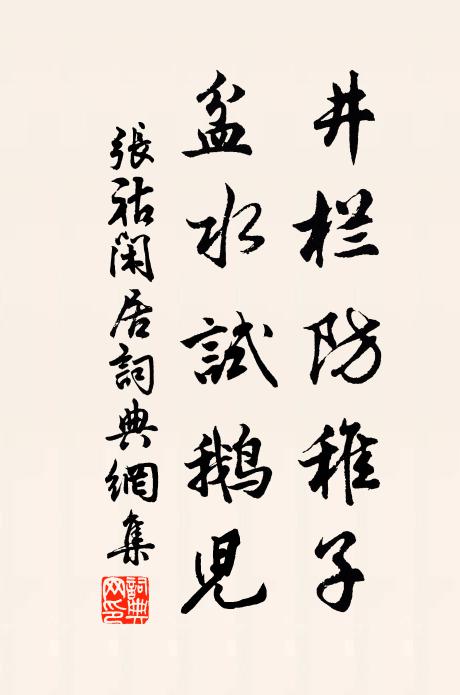 井栏防稚子
盆水試鵝兒
張祜閑居詞典網集
詞典网印